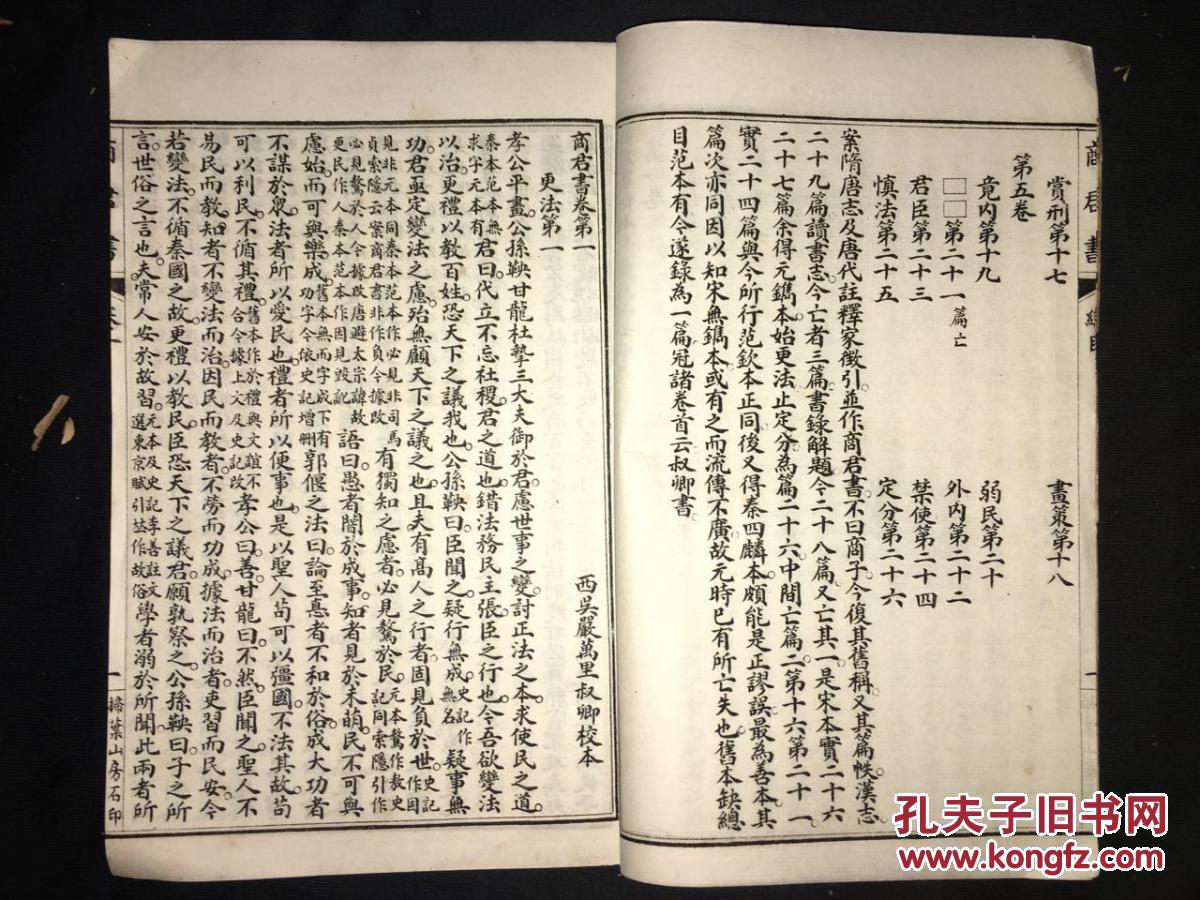 商君書 總目
賞刑第十七 畫策第十八
第五卷
竟內第十九 弱民第二十
□□第二十一篇亡 外內第二十二
君臣第二十三 禁使第二十四
慎法第二十五 定分第二十六
案隋唐志及唐代註釋家徵引並作商君書不曰商子今復其舊稱又其篇帙漢志
二十九篇讀書志今亡者三篇書錄解題今二十八篇又亡其一是宋本實二十六
二十七篇余得元鐫本始更法止定分為篇二十六中間亡篇二第十六第二十一
實二十四篇與今所行范欽本正同後又得秦四麟本頗能是正謬誤最為善本其
篇次亦同因以知宋無鐫本或有之而流傳不廣故元時已有所亡失也舊本缺總
目范本有今遂錄為一篇冠諸卷首云叔卿書
一
商君書卷第一 西吳嚴萬里叔卿校本
更法第一
孝公平畫公孫鞅甘龍杜摯三大夫御於君慮世事之變討正法之本求使民之道
秦本范本無求字元本有君曰代立不忘社稷君之道也錯法務民主張臣之行也今吾欲變法
以治更禮以教百姓恐天下之議我也公孫鞅曰臣聞之疑行無成史記作無名疑事無
功君亟定變法之慮殆無顧天下之議之也且夫有高人之行者固見負於世史記作固
見非元本同秦本范本作必見非司馬貞索隱云案商君書非作負今據改有獨知之慮者必見驁於民元本驁作敖史記同索隱引作
必見驁於人今據改唐避太宗諱故更民作人秦本范本作因見毀訛語曰愚者闇於成事知者見於未萌民不可與
慮始而可與樂成舊本無而字成下有功字今依史記增刪郭偃之法曰論至德者不和於俗成大功者
不謀於眾法者所以愛民也禮者所以便事也是以聖人苟可以彊國不法其故苟
可以利民不循其禮舊本作於禮與文誼不合今據上文及史記改孝公曰善甘龍曰不然臣聞之聖人不
易民而教知者不變法而治因民而教者不勞而功成據法而治者吏習而民安今
若變法不循秦國之故更禮以教民臣恐天下之議君願孰察之公孫鞅曰子之所
言世俗之言也夫常人安於故習元本及史記李善註文選東京賦引竝作故俗學者溺於所聞此兩者所
商君書 卷一
一 掃葉山房石印
孔夫子旧书网
www.kongfz.com